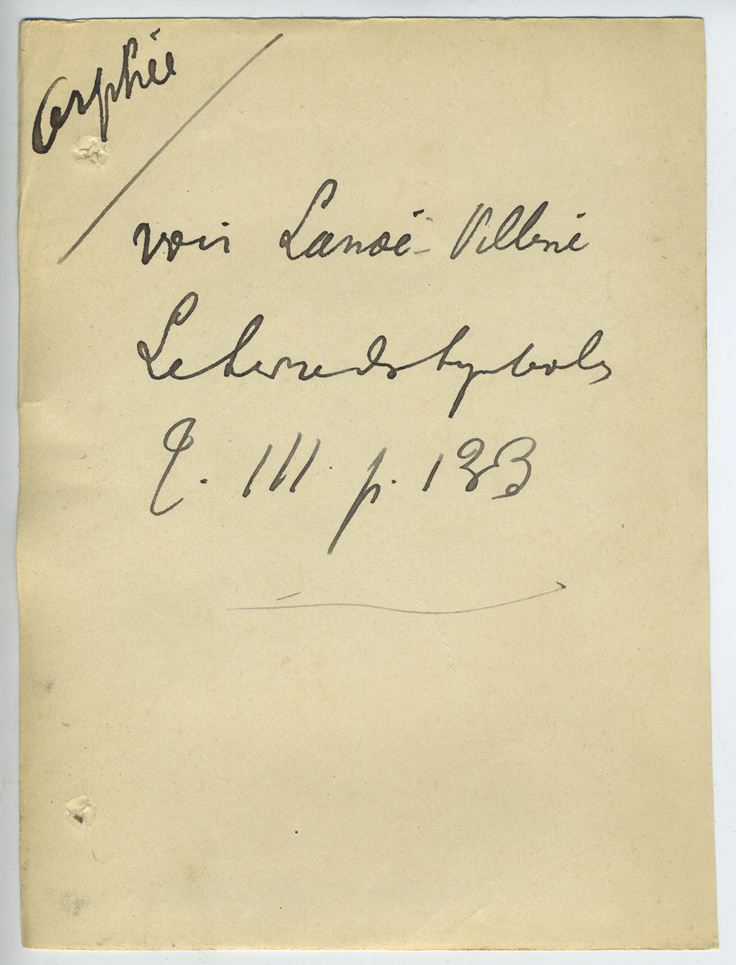 Orphée
voir Lanoé-Villène
Le livre des symboles
T. III. p. 133